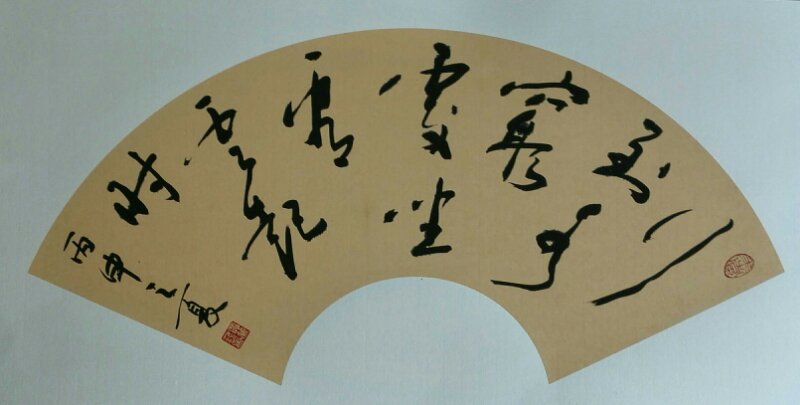 行
到水
穷
处坐
看
云起
时
丙申之夏